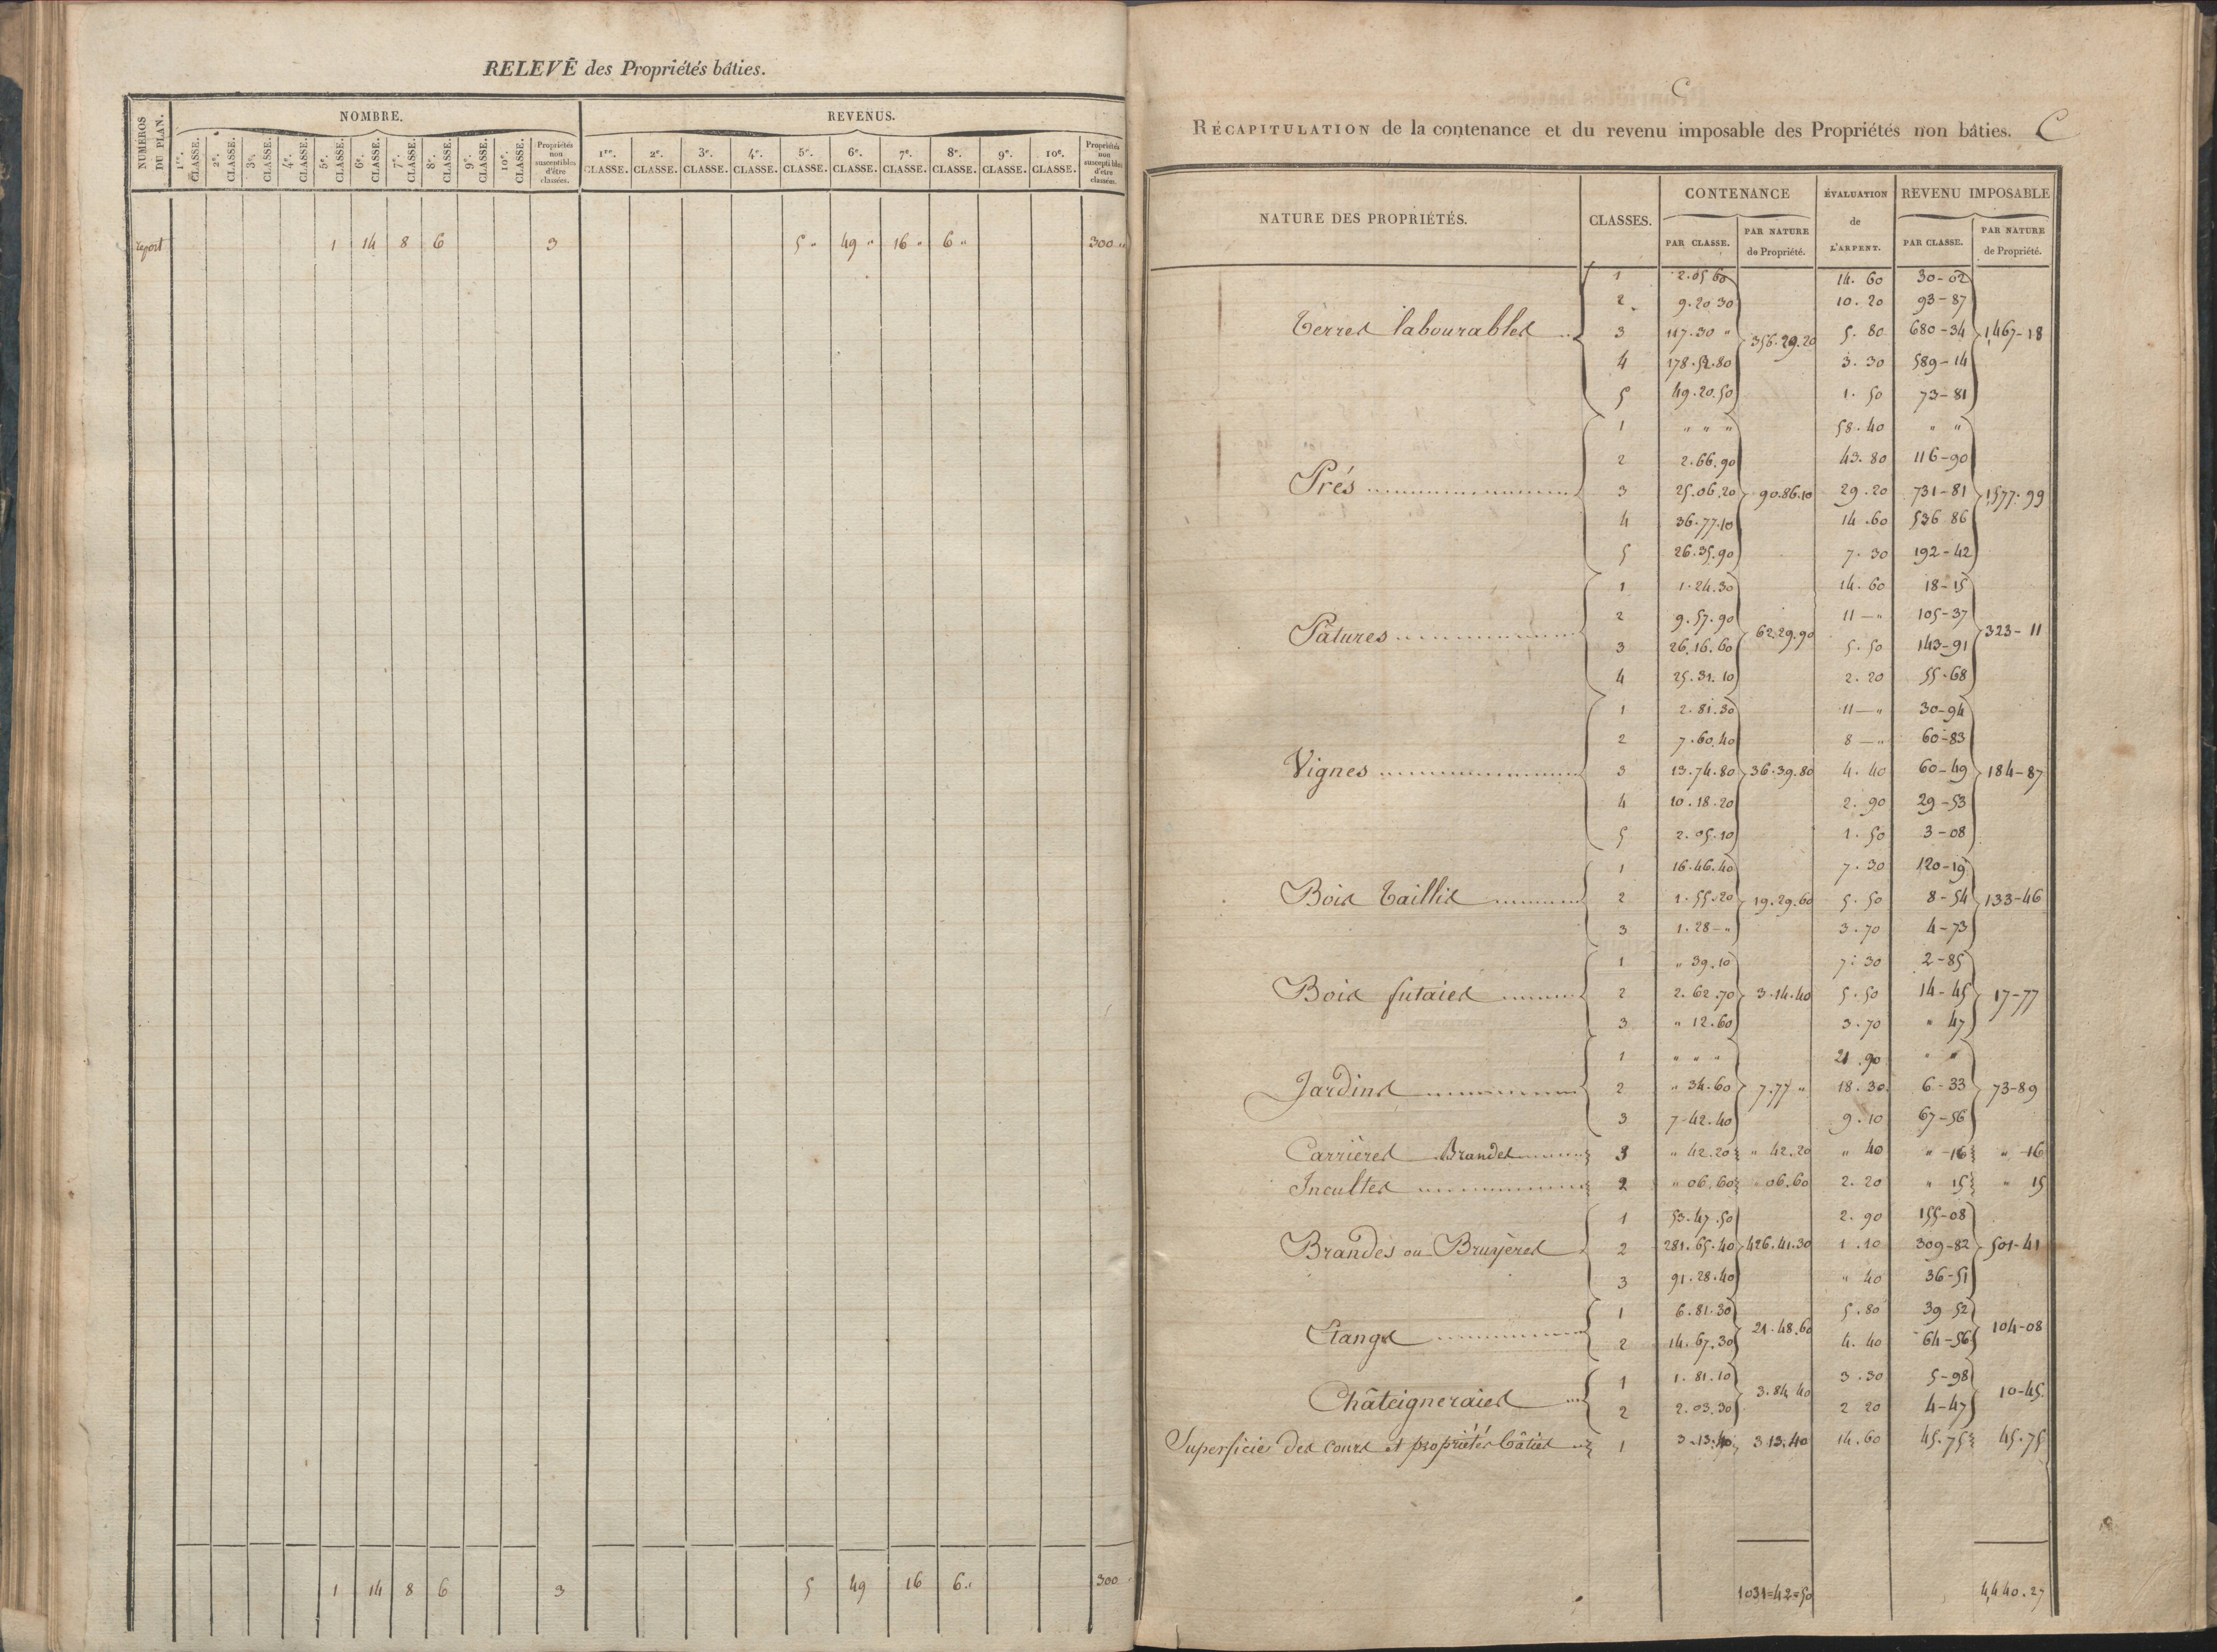 RELEVÉ des Propriétés bâties.
NUMEROS DU PLAN. NOMBRE. REVENUS.
1re. CLASSE. 2e. CLASSE. 3e. CLASSE. 4e. CLASSE. 5e. CLASSE. 6e. CLASSE. 7e. CLASSE. 8e. CLASSE. 9e. CLASSE. 10e. CLASSE. Propriétés non susceptibles d'être classées. 1re. CLASSE. 2e. CLASSE. 3e. CLASSE. 4e. CLASSE. 5e. CLASSE. 6e. CLASSE. 7e. CLASSE. 8e. CLASSE. 9e. CLASSE. 10e. CLASSE. Propriétés non susceptibles d'être classées.
report 1 14 8 6 3 5 " 49 " 16 " 6 " 300 "
1 14 8 6 3 5 49 16 6 " 300
C
RÉCAPITULATION de la contenance et du revenu imposable des Propriétés non bâties. C
NATURE DES PROPRIÉTÉS. CLASSES. CONTENANCE ÉVALUATION de L'ARPENT. REVENU IMPOSABLE
PAR CLASSE. PAR NATURE de Propriété. PAR CLASSE. PAR NATURE de Propriété.
1 2.05 60 14. 60 30-02
2 9.20 30 10. 20 93-87
Terres labourables 3 117.30 " 356.29.20 5. 80 680-34 1,467-18
4 178.52.80 3. 30 589-14
5 49.20.50 1. 50 73-81
1 " " " 58.40 " "
2 2.66.90 43. 80 116-90
Prés 3 25.06.20 90.86.10 29.20 731-81 1577.99
4 36.77.10 14.60 536 86
5 26.35.90 7. 30 192-42
1 1.24.30 14.60 18-15
2 9.57.90 11 - " 105-37
Pâtures 62.29.90 323-11
3 26.16.60 5.50 143-91
4 25.31.10 2. 20 55.68
1 2.81.30 11 - " 30-94
2 7.60.40 8 - " 60-83
Vignes 3 13.74.80 36.39.80 4. 40 60-49 184-87
4 10.18.20 2. 90 29-53
5 2.05.10 1. 50 3-08
1 16.46.40 7.30 120-19
Bois taillis 2 1.55.20 19.29.60 5.50 8-54 133-46
3 1.28-" 3.70 4-73
1 " 39.10 7. 30 2-85
Bois futaies 2 2.62.70 3.14.40 5.50 14-45 17-77
3 " 12.60 3.70 " 47
1 " " " 21.90 " "
Jardins 2 " 34.60 7.77 " 18.30 6-33 73-89
3 7-42.40 9.10 67-56
Carrières Brandes 3 " 42.20 " 42.20 " 40 " -16 " -16
Incultes 2 " 06.60 " 06.60 2. 20 " 15 " 15
1 53.47.50 2. 90 155-08
Brandes ou Bruyères 2 281.65.40 426.41.30 1.10 309-82 501-41
3 91.28.40 " 40 36-51
1 6.81.30 5.80 39 52
Etangs 21.48.60 104-08
2 14.67.30 4.40 64-56
1 1.81.10 3.30 5-98
Châteigneraies 3.84 40 10-45
2 2.03.30 2 20 4-47
Superficie des cours et propriétés bâties 1 3.13.40 3.13.40 14.60 45.75 45.75
1031=42=50 4,440.27